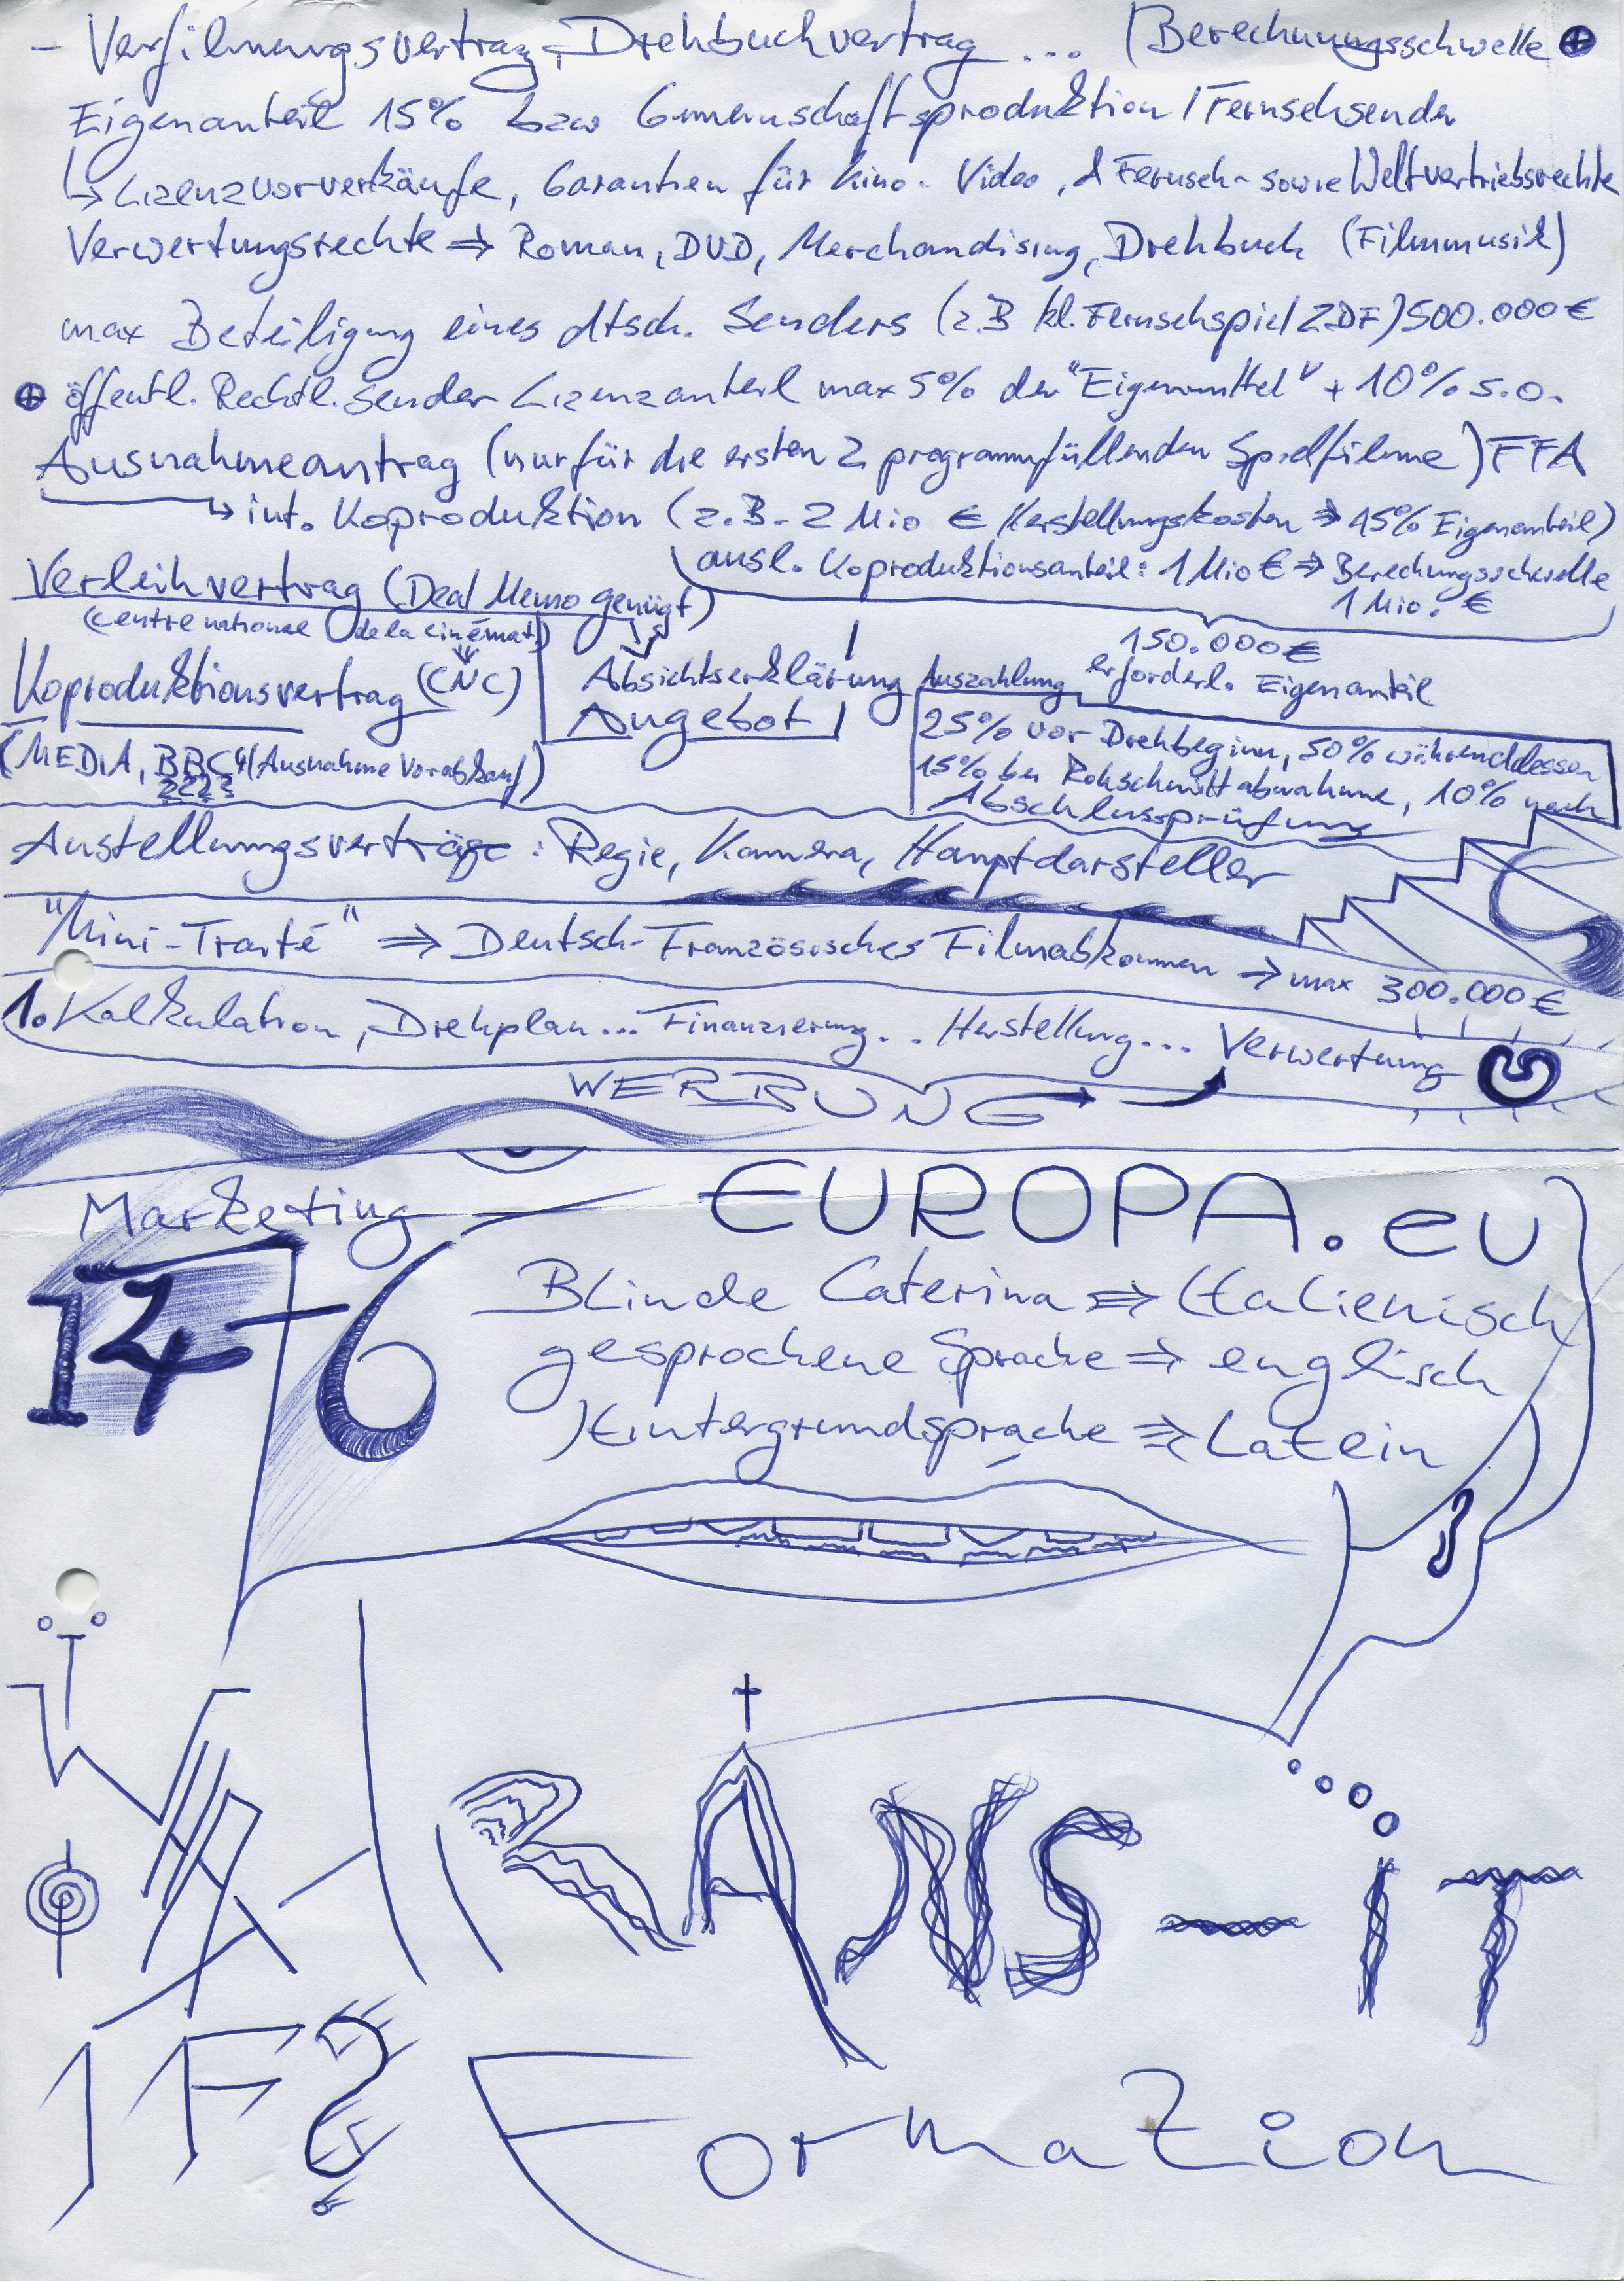 – Verfilmungsvertrag, Drehbuchvertrag ... (Berechnungsschwelle ⊕
Eigenanteil 15% bzw Gemeinschaftsproduktion / Fernsehsender
↳ Lizenzvorverkäufe, Garantien für Kino- Video, & Fernseh- sowie Weltvertriebsrechte
Verwertungsrechte ⇒ Roman, DVD, Merchandising, Drehbuch (Filmmusik)
max Beteiligung eines dtsch. Senders (z.B kl. Fernsehspiel ZDF) 500.000 €
⊕ öffentl. Rechtl. Sender Lizenzanteil max 5% der "Eigenmittel" + 10% s.o.
Ausnahmeantrag (nur für die ersten 2 programmfüllenden Spielfilme) FFA
↳ int. Koproduktion (z.B. 2 Mio € Herstellungskosten ⇒ 15% Eigenanteil)
ausl. Koproduktionsanteil: 1 Mio € ⇒ Berechungsschwelle
1 Mio. €
Verleihvertrag (Deal Memo genügt)
(centre national de la cinémat.)
150.000 €
erforderl. Eigenanteil
Koproduktionsvertrag (CNC)
Absichtserklärung
Angebot!
(MEDIA, BBC 4 (Ausnahme Vorabkauf)
????
Auszahlung
25% vor Drehbeginn, 50% währenddessen
15% bei Rohschnittabnahme, 10% nach
Abschlussprüfung
Anstellungsverträge: Regie, Kamera, Hauptdarsteller
"Mini-Traité" ⇒ Deutsch-Französisches Filmabkommen → max 300.000 €
1. Kalkulation, Drehplan... Finanzierung.. Herstellung... Verwertung
WERBUNG
Marketing
EUROPA.eu
1476
Blinde Caterina ⇒ Italienisch
gesprochene Sprache ⇒ englisch
Hintergrundsprache ⇒ Latein
TRANS-IT
Formation